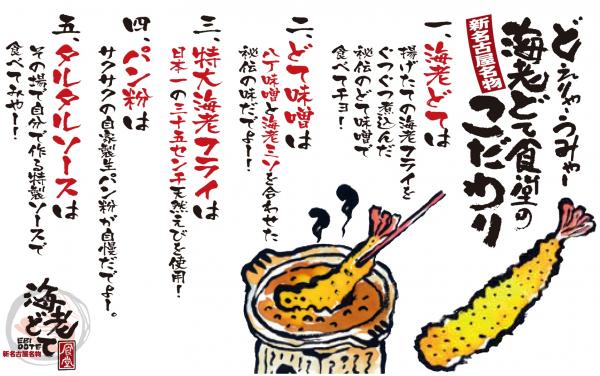 どえりゃーうみゃー
海老どて食堂の
こだわり
新名古屋名物
一、海老どては
揚げたての海老フライを
ぐつぐつ煮込んだ
秘伝のどて味噌で
食べてチョ！
二、どて味噌は
八丁味噌と海老ミソを合わせた
秘伝の味だでよー！
三、特大海老フライは
日本一の三十五センチ天然えびを使用！
四、パン粉は
サクサクの自家製生パン粉が自慢だでよー。
五、タルタルソースは
その場で自分で作る特製ソースで
食べてみやー！
海老どて
EBI DOTE
食堂
新名古屋名物